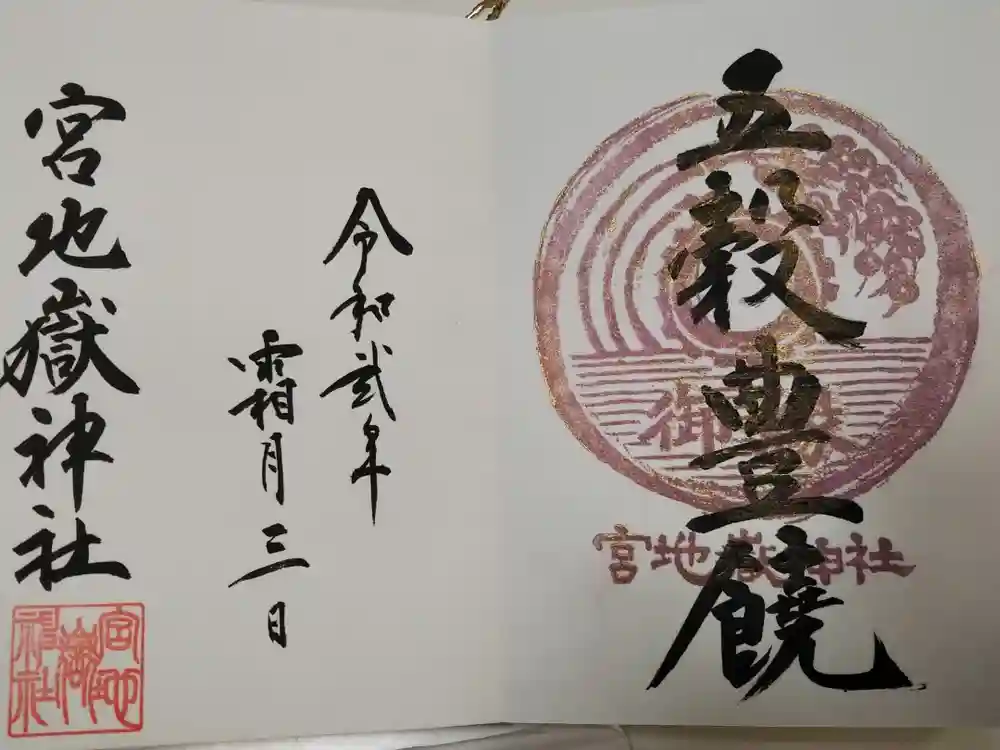 五穀豊饒
宮地嶽神社
令和弐年
霜月三日
宮地嶽神社
宮地嶽神社